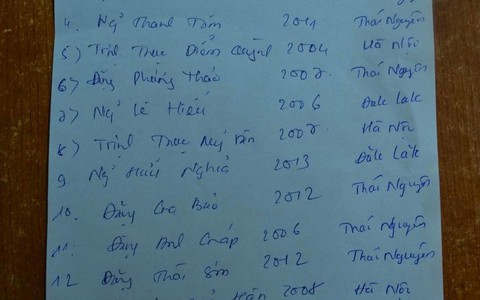 4. Ngô Thanh Tâm 2011 Thái Nguyên
5) Trịnh Thục Diễm Quỳnh 2004 Hà Nội
6) Đặng Phương Thảo 2007 Thái Nguyên
7) Ngô Lê Hiếu 2006 Đăk Lăk
8) Trịnh Thục 2007 Hà Nội
9 Ngô Hữu Nghĩa 2013 Đăk Lăk
10. Đặng Gia Bảo 2012 Thái Nguyên
11. Đặng 2006 Thái Nguyên
12 Đặng Thái Sơn 2012 Thái Nguyên
Hân 2008 Hà Nội